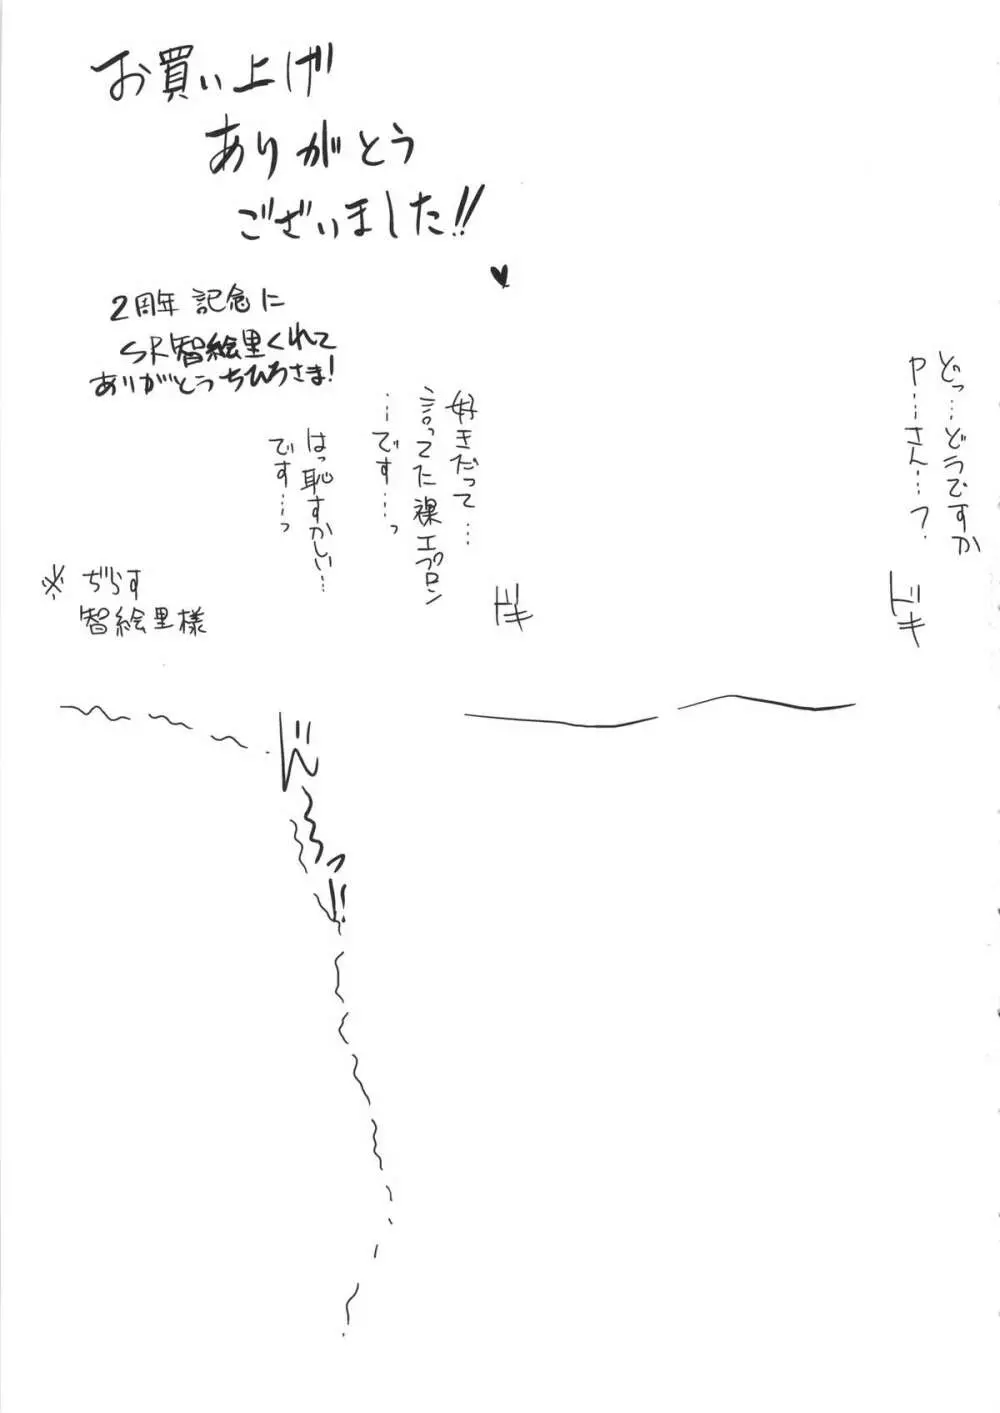 お買い上げ
ありがとう
ございました!!
♥
2周年 記念に
SR智絵里くれて
ありがとうちひろさま!
どっ…どうですか
P…さん…?
好きだって…
言ってた裸エプロン
…です…っ
はっ恥ずかしい…
です…っ
ドキ
ドキ
智絵里様